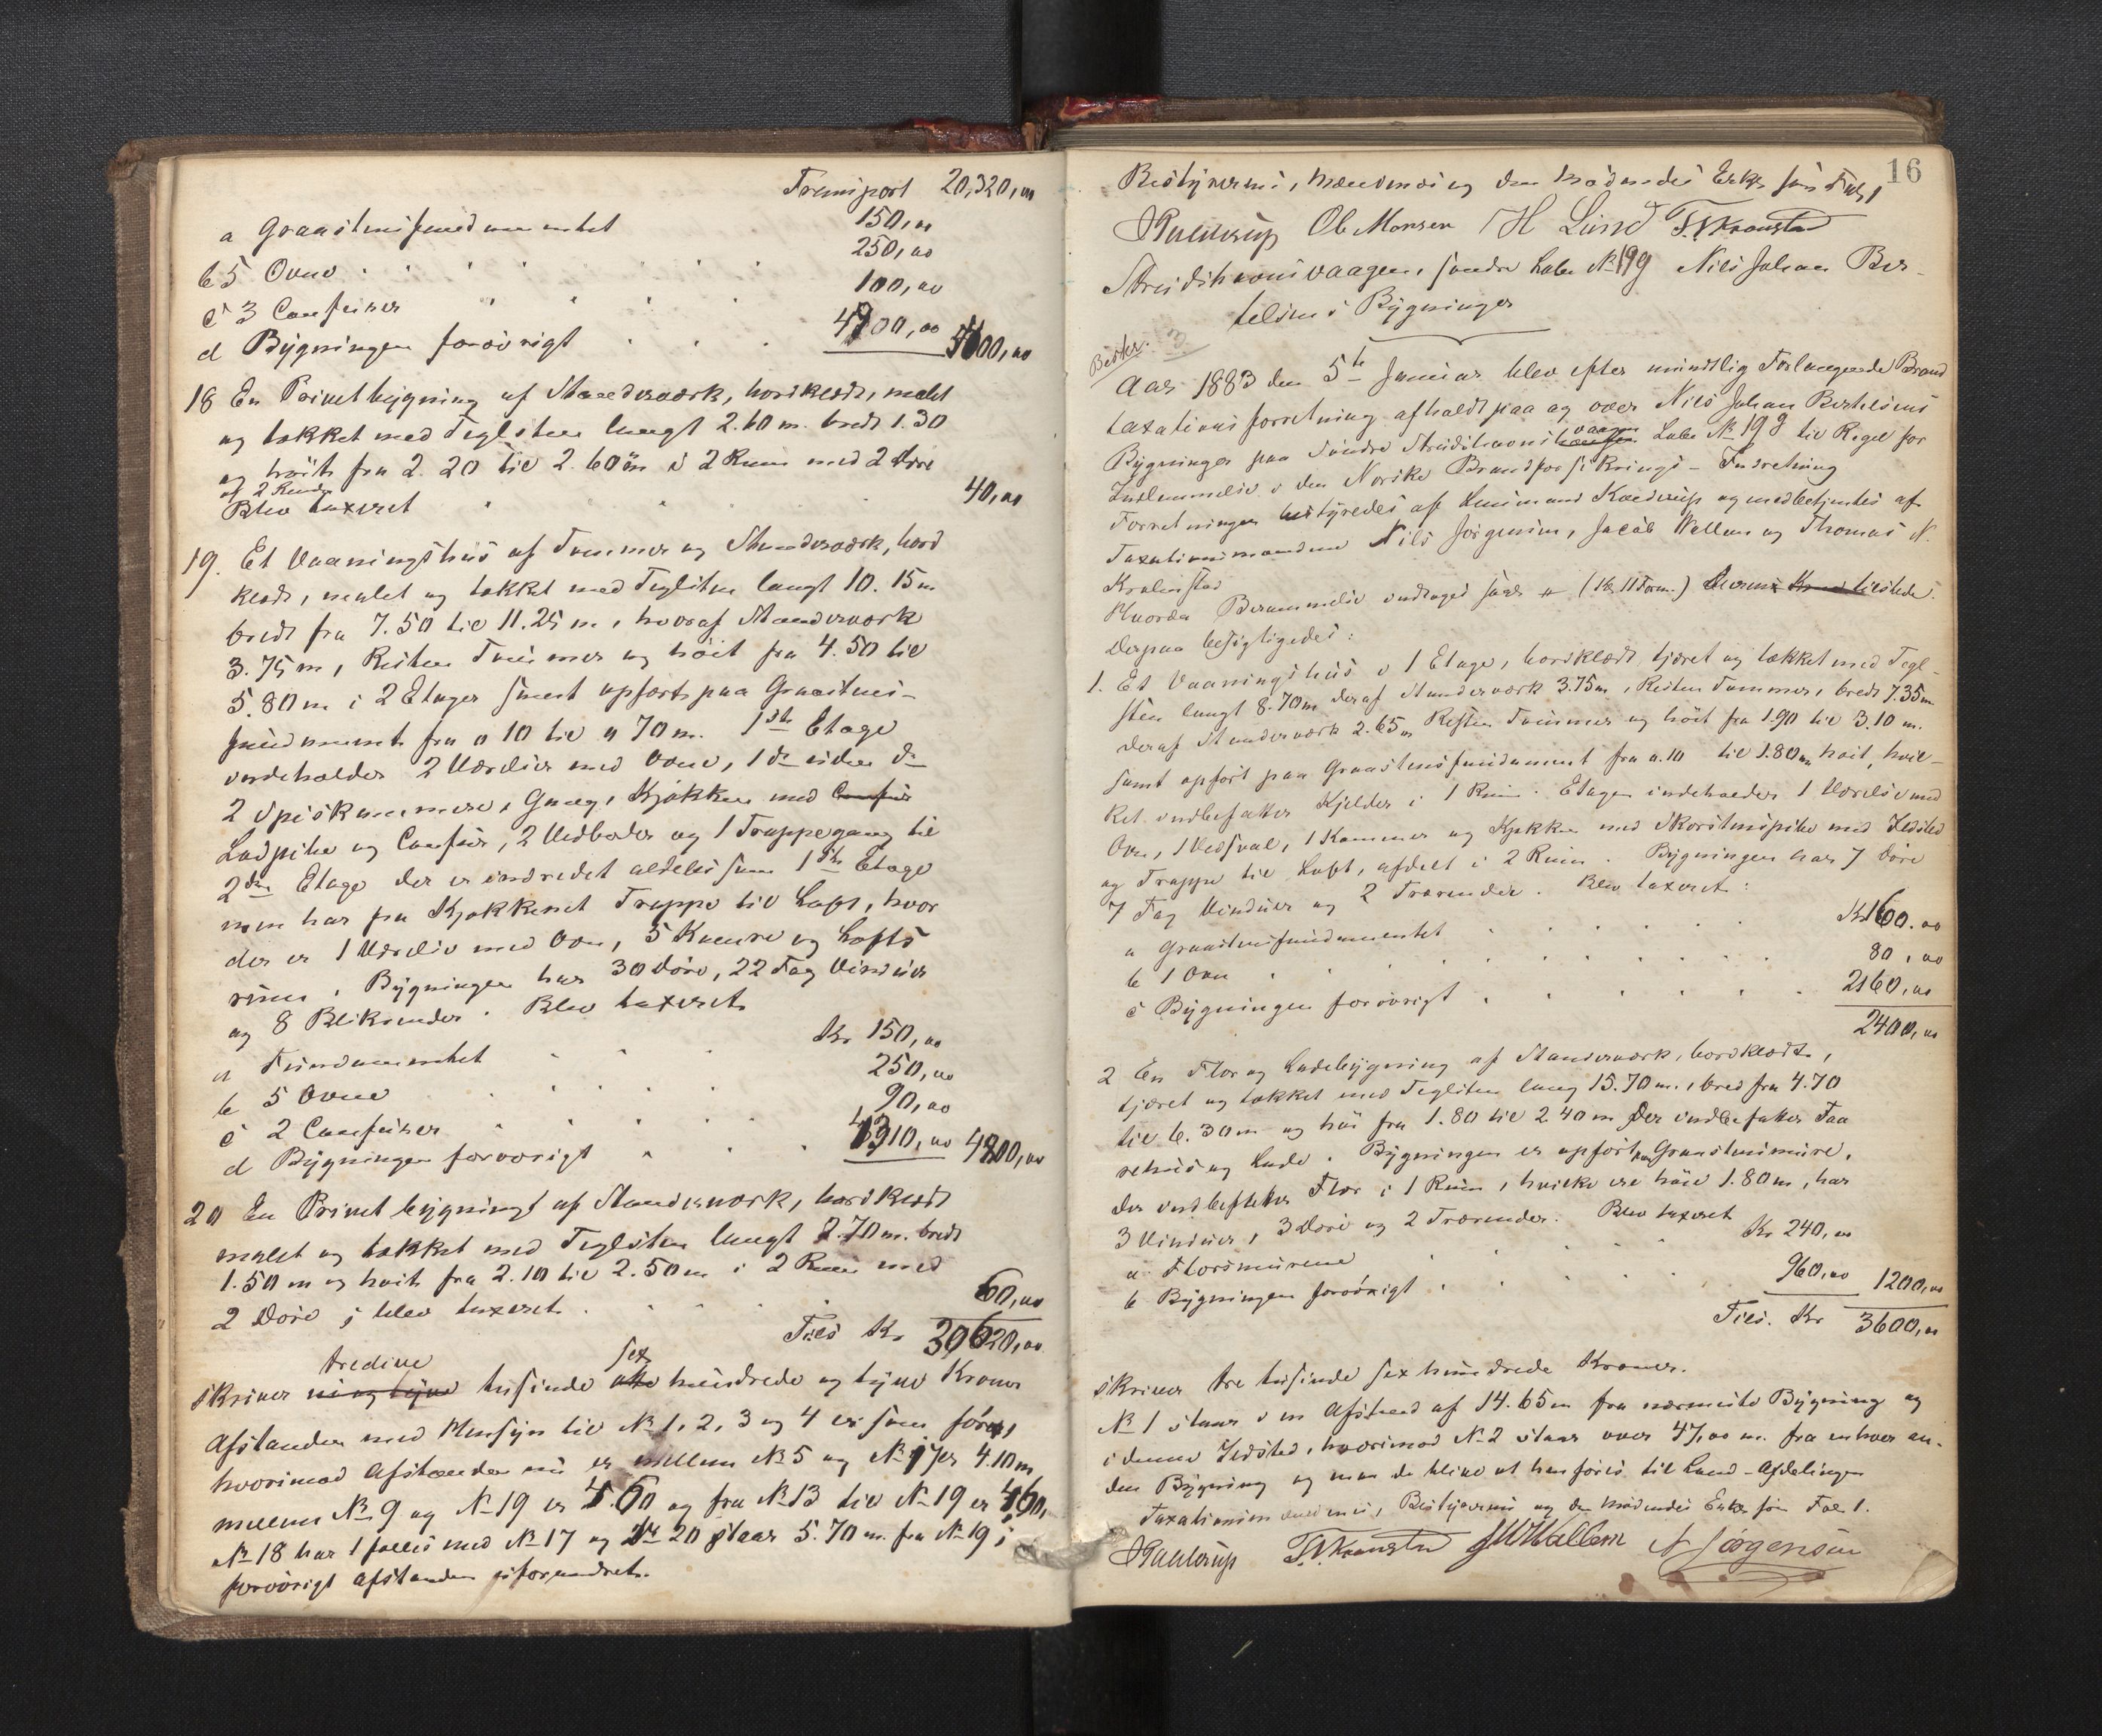 Transport 20,320,00
a Graastensfundamentet 150,00
b 5 Ovne 250,00
c 3 Comfurer 100,00
d Bygningen forøvrigt 4900,00 5400,00
18 En Privetbygning af Standerværk, bordklædt, malet
og tækket med Teglsten langt 2.60 m. bredt 1.30
og høit fra 2.20 til 2.60 m i 2 Rum med 2 Døre
og 2 Render
Blev taxeret 40,00
19. Et Vaaningshus af Tømmer og Standerværk, bord
klædt, malet og tækket med Teglsten langt 10.15 m
bredt fra 7.50 til 11.25 m, hvoraf Standerværk
3.75 m, Resten Tømmer og høit fra 4.50 til
5.80 m i 2 Etager samt opført paa Graastens-
fundament fra 0 10 til 0 70 m. 1ste Etage
indeholder 2 Værelser med Ovne, 1 do uden do
2 Spiskammere, Gang, Kjøkken med Comfur
Ladpibe og Comfur, 2 Vedboder og 1 Trappegang til
2den Etage der er indredet aldeles som 1ste Etage
men har fra Kjøkkenet Trappe til Loft, hvor
der er 1 Værelse med Ovn, 5 Kamre og Lofts
rum. Bygningen har 30 Døre, 22 Fag Vinduer
og 8 Blikrender. Blev taxeret
a Fundamentet Kr 150,00
b 5 Ovne 250,00
c 2 Comfurer 90,00
d Bygningen forøvrigt 4310,00 4800,00
20 En Privetbygningt af Standerværk, bordklædt
malet og tækket med Teglsten langt 2.70 m. bredt
1.50 m og høit fra 2.10 til 2.50 m i 2 Rum med
2 Døre; blev taxeret 60,00
Tils Kr 30620,00
tredive sex
skriver ni og tyve tusinde otte hundrede og tyve Kroner
Afstanden med Hensyn til No 1, 2, 3 og 4 er som før,
hvorimod Afstanden nu er mellem No 5 og No 17 er 4.10 m
mellem No 9 og No 19 er 4.60 og fra No 13 til No 19 er 4.60,
No 18 har 1 fælles med No 17 og No 20 staar 5.70 m. fra No 19;
forøvrigt Afstanden uforandret.
16
Bestyrerens, Mændenes og den mødendes Erkl. som Fol. 1
Kuulerup Ole Monsen H Lund T. N. Kronstad
Stridshavnsvaagen, søndre Labr No 199 Nils Johan Ber-
telsens Bygninger
Aar 1883 den 5te Januar blev efter mundtlig Forlangende Brand
taxationsforretning afholdt paa og over Nils Johan Bertelsens
vaagen
Bygninger paa Søndre Stridshavns Labr No 199 til Regel for
Indlemmelse i den Norske Brandforsikrings-Indretning
Forretningen bestyredes af Lensmand Kuulerup og medbetjentes af
Taxationsmændene Nils Jørgensen, Jacob Wallem og Thomas N.
Kronstad
Derpaa besigtigedes:
1. Et Vaaningshus i 1 Etage, bordklædt, tjæret og tækket med Tegl-
sten langt 8.70 m deraf Standerværk 3.75 m, Resten Tømmer, bredt 7.35 m
deraf Standerværk 2.65 m Resten Tømmer og høit fra 1.90 til 3.10 m.
samt opført paa Graastensfundament fra 0.10 til 1.80 m høit, hvil-
ket indbefatter Kjelder i 1 Rum. Etagen indeholder 1 Værelse med
Ovn, 1 Vedsval, 1 Kammer og Kjøkken med Skorstenspibe med Ildsted
og Trappe til Loft, afdelt i 2 Rum. Bygningen har 7 Døre
7 Fag Vinduer og 2 Trærender. Blev taxeret:
a Graastensfundamentet Kr 160.00
b 1 Ovn 80,00
c Bygningen forøvrigt 2160,00
2400,00
2 En Flor og Ladebygning af Standerværk, bordklædt,
tjæret og tækket med Teglsten lang 15.70 m., bred fra 4.70
til 6.30 m og høi fra 1.80 til 2.40 m. Der indbefatter Faa
rehus og Lade. Bygningen er opført paa Graastensmure,
der indbefatter Flor i 1 Rum, hvilke ere høie 1.80 m, har
3 Vinduer, 3 Døre og 2 Trærender. Blev taxeret
a Florsmurene Kr 240,00
b Bygningen forøvrigt 960,00 1200,00
Tils. Kr 3600,00
skriver tre tusinde sex hundrede Kroner.
No 1 staar i en Afstand af 14.65 m fra nærmeste Bygning og
i denne Ildsted, hvorimod No 2 staar over 47,00 m. fra enhver an-
den Bygning og maa de blive at henføres til Land-Afdelingen
Taxationsmændenes, Bestyrerens og den mødendes Erkl. som Fol 1.
Kuulerup T. N. Kronstad J W Wallem N Jørgensen